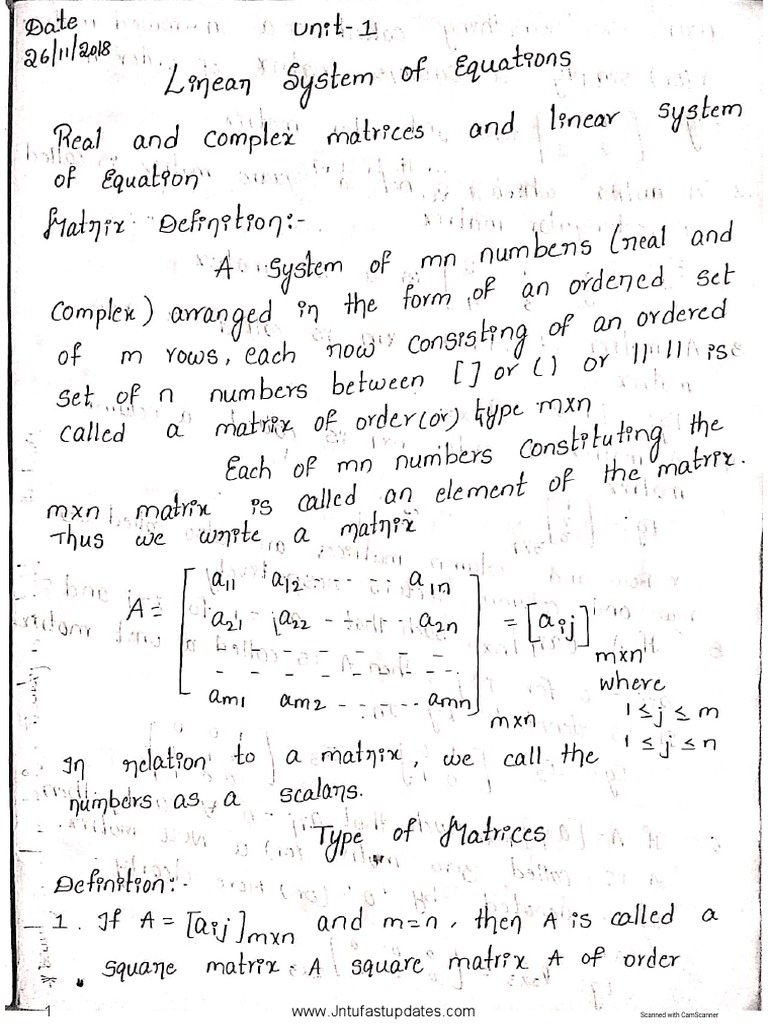 Date Unit-1
26/11/2018
Linear System of Equations
Real and complex matrices and linear system
of Equation
Matrix Definition:-
A System of mn numbers (real and
complex) arranged in the form of an ordered set
of m rows, each row consisting of an ordered
set of n numbers between [] or () or || || is
called a matrix of order(or) type mxn
Each of mn numbers constituting the
mxn matrix is called an element of the matrix.
Thus we write a matrix
A = [ a11 a12 - - - - - a1n
a21 a22 - - - - a2n
- - - - - - -
- - - - - - -
am1 am2 - - - - - amn ] mxn = [aij] mxn
where
1 ≤ j ≤ m
1 ≤ j ≤ n
In relation to a matrix, we call the
numbers as a scalars.
Type of Matrices
Definition:-
1. If A = [aij]mxn and m=n, then A is called a
square matrix. A square matrix A of order
1
www.Jntufastupdates.com
Scanned with CamScanner